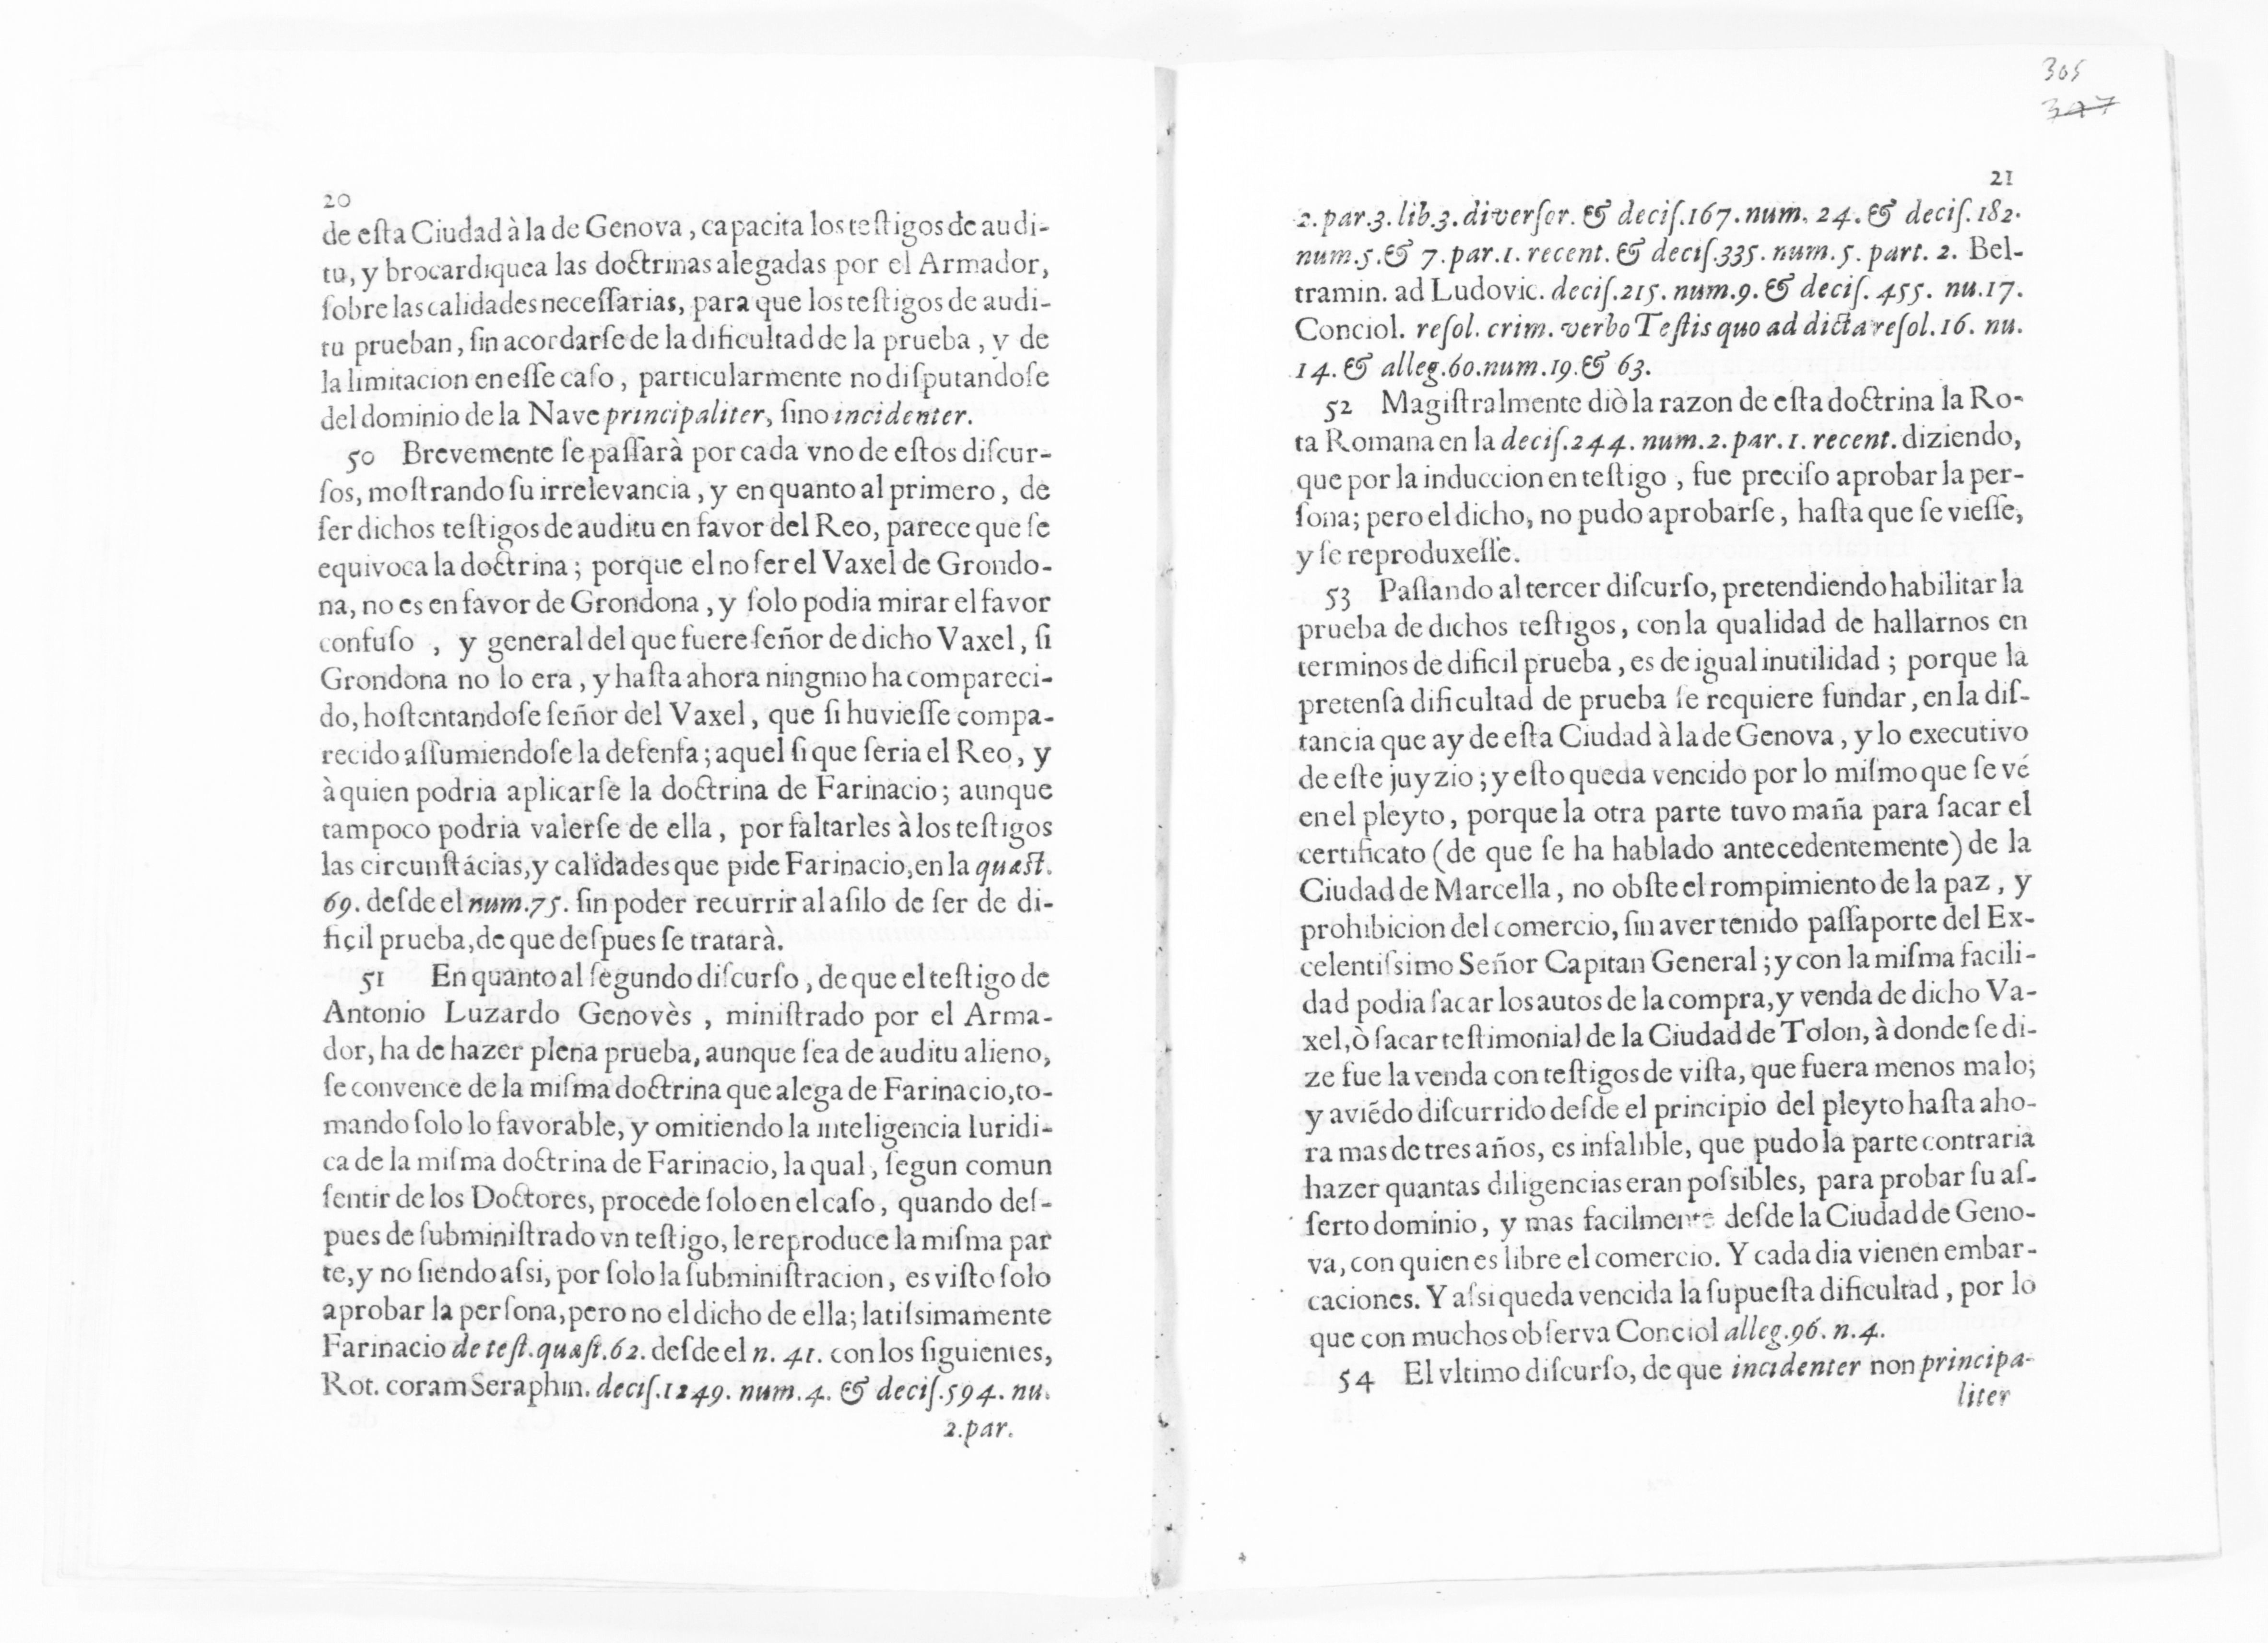 20
de eſta Ciudad à la de Genova, capacita los teſtigos de audi-
tu, y brocardiquea las doctrinas alegadas por el Armador,
ſobre las calidades neceſſarias, para que los teſtigos de audi-
tu prueban, ſin acordarſe de la dificultad de la prueba, y de
la limitacion en eſſe caſo, particularmente no diſputandoſe
del dominio de la Nave principaliter, ſino incidenter.
50 Brevemente ſe paſſarà por cada vno de eſtos diſcur-
ſos, moſtrando ſu irrelevancia, y en quanto al primero, de
ſer dichos teſtigos de auditu en favor del Reo, parece que ſe
equivoca la doctrina; porque el no ſer el Vaxel de Grondo-
na, no es en favor de Grondona, y ſolo podia mirar el favor
confuſo, y general del que fuere ſeñor de dicho Vaxel, ſi
Grondona no lo era, y haſta ahora ningnno ha compareci-
do, hoſtentandoſe ſeñor del Vaxel, que ſi huvieſſe compa-
recido aſſumiendoſe la defenſa; aquel ſi que ſeria el Reo, y
à quien podria aplicarſe la doctrina de Farinacio; aunque
tampoco podria valerſe de ella, por faltarles à los teſtigos
las circunſtácias, y calidades que pide Farinacio, en la quæſt.
69. deſde el num.75. ſin poder recurrir al aſilo de ſer de di-
fiçil prueba, de que deſpues ſe tratarà.
51 En quanto al ſegundo diſcurſo, de que el teſtigo de
Antonio Luzardo Genovès, miniſtrado por el Arma-
dor, ha de hazer plena prueba, aunque ſea de auditu alieno,
ſe convence de la miſma doctrina que alega de Farinacio, to-
mando ſolo lo favorable, y omitiendo la inteligencia Iuridi-
ca de la miſma doctrina de Farinacio, la qual, ſegun comun
ſentir de los Doctores, procede ſolo en el caſo, quando deſ-
pues de ſubminiſtrado vn teſtigo, le reproduce la miſma par
te, y no ſiendo aſsi, por ſolo la ſubminiſtracion, es viſto ſolo
aprobar la perſona, pero no el dicho de ella; latiſsimamente
Farinacio de teſt. quæſt.62. deſde el n. 41. con los ſiguientes,
Rot. coram Seraphin. deciſ.1249. num.4. & deciſ.594. nu.
2.par.
305
347
21
2.par.3.lib.3.diverſor. & deciſ.167.num. 24. & deciſ.182.
num.5. & 7.par.1.recent. & deciſ.335.num.5. part. 2. Bel-
tramin. ad Ludovic. deciſ.215.num.9. & deciſ. 455. nu.17.
Conciol. reſol. crim. verbo Teſtis quo ad dicta reſol.16. nu.
14. & alleg.60.num.19. & 63.
52 Magiſtralmente diò la razon de eſta doctrina la Ro-
ta Romana en la deciſ.244. num.2. par.1. recent. diziendo,
que por la induccion en teſtigo, fue preciſo aprobar la per-
ſona; pero el dicho, no pudo aprobarſe, haſta que ſe vieſſe,
y ſe reproduxeſſe.
53 Paſſando al tercer diſcurſo, pretendiendo habilitar la
prueba de dichos teſtigos, con la qualidad de hallarnos en
terminos de dificil prueba, es de igual inutilidad; porque la
pretenſa dificultad de prueba ſe requiere fundar, en la diſ-
tancia que ay de eſta Ciudad à la de Genova, y lo executivo
de eſte juyzio; y eſto queda vencido por lo miſmo que ſe vé
en el pleyto, porque la otra parte tuvo maña para ſacar el
certificato (de que ſe ha hablado antecedentemente) de la
Ciudad de Marcella, no obſte el rompimiento de la paz, y
prohibicion del comercio, ſin aver tenido paſſaporte del Ex-
celentiſsimo Señor Capitan General; y con la miſma facili-
dad podia ſacar los autos de la compra, y venda de dicho Va-
xel, ò ſacar teſtimonial de la Ciudad de Tolon, à donde ſe di-
ze fue la venda con teſtigos de viſta, que fuera menos malo;
y aviẽdo diſcurrido deſde el principio del pleyto haſta aho-
ra mas de tres años, es infalible, que pudo la parte contraria
hazer quantas diligencias eran poſsibles, para probar ſu aſ-
ſerto dominio, y mas facilmente deſde la Ciudad de Geno-
va, con quien es libre el comercio. Y cada dia vienen embar-
caciones. Y aſsi queda vencida la ſupueſta dificultad, por lo
que con muchos obſerva Conciol alleg.96. n.4.
54 El vltimo diſcurſo, de que incidenter non principa-
liter